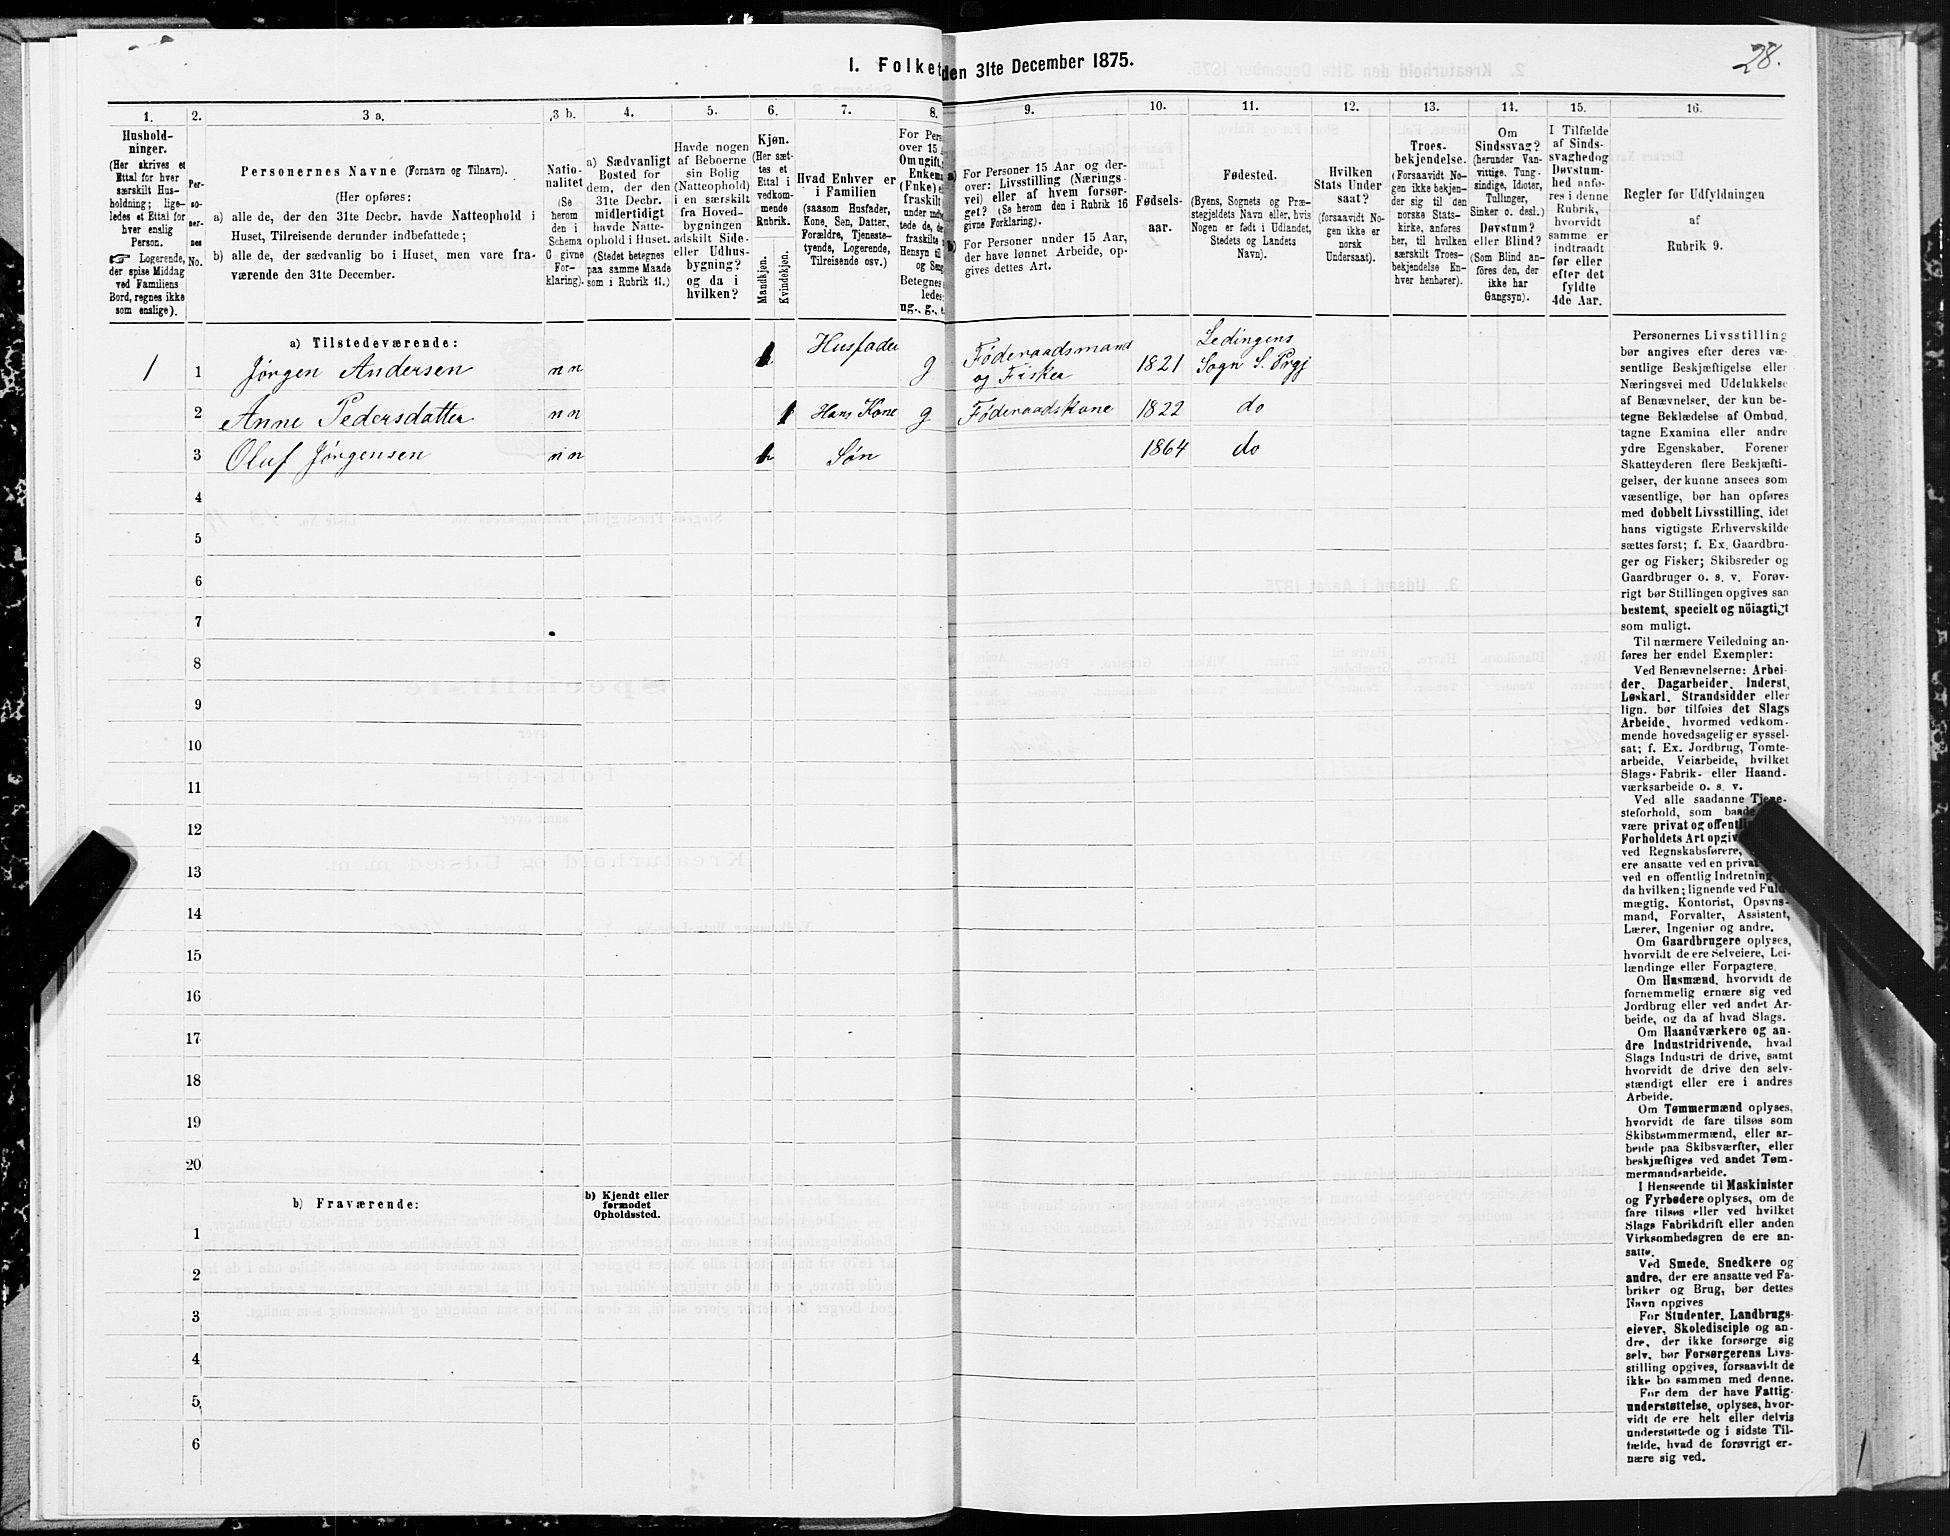 28.
I. Folket
den 31te December 1875.
1.
Hushold-
ninger.
(Her skrives et
Ettal for hver
særskilt Hus-
holdning; lige-
ledes et Ettal for
hver enslig
Person.
Logerende,
der spise Middag
ved Familiens
Bord, regnes ikke
som enslige).
2.
Per-
so-
ner-
nes
No.
3 a.
Personernes Navne (Fornavn og Tilnavn).
(Her opføres:
a) alle de, der den 31te Decbr. havde Natteophold i
Huset, Tilreisende derunder indbefattede;
b) alle de, der sædvanlig bo i Huset, men vare fra-
værende den 31te December.
3 b.
Natio-
nalitet
(Se
herom
den i
Schema
C givne
For-
klaring).
4.
a) Sædvanligt
Bosted for
dem, der den
31te Decbr.
midlertidigt
havde Natte-
ophold i Huset.
(Stedet betegnes
paa samme Maade
som i Rubrik 11.)
5.
Havde nogen
af Beboerne
sin Bolig
(Natteophold)
i en særskilt
fra Hoved-
bygningen
adskilt Side-
eller Udhus-
bygning?
og da i
hvilken?
6.
Kjøn.
(Her sæt-
tes et
Ettal i
vedkom-
mende
Rubrik.
Mandkjøn.
Kvindekjøn.
7.
Hvad Enhver er
i Familien
(saasom Husfader,
Kone, Søn, Datter,
Forældre, Tjeneste-
tyende, Logerende,
Tilreisende osv.)
8.
For Pers
over 15
Om ugift,
Enkema
(Fnke) e
fraskilt
under ind
tede de, de
fraskilte
Hensyn til
og Sen
Betegnes
ledes:
ug., g., e
9.
a) For Personer 15 Aar og der-
over: Livsstilling (Nærings-
vei) eller af hvem forsør-
get? (Se herom den i Rubrik 16
givne Forklaring).
b) For Personer under 15 Aar,
der have lønnet Arbeide, op-
gives dettes Art.
10.
Fødsels-
aar.
11.
Fødested.
(Byens, Sognets og Præ-
stegjeldets Navn eller, hvis
Nogen er født i Udlandet,
Stedets og Landets
Navn).
12.
Hvilken
Stats Under-
saat?
(forsaavidt No-
gen ikke er
norsk
Undersaat).
13.
Troes-
bekjendelse.
(Forsaavidt No-
gen ikke bekjen-
der sig til den
norske Stats-
kirke, anføres
her, til hvilken
særskilt Troes-
bekjendelse En-
hver henhører).
14.
Om
Sindssvag?
(herunder Van-
vittige, Tung-
sindige, Idioter,
Tullinger,
Sinker o. desl.)
Døvstum?
eller Blind?
(Som Blind an-
føres den, der
ikke har
Gangsyn).
15.
I Tilfælde
af Sinds-
svaghedog
Døvstum-
hed anfø-
res i denne
Rubrik,
hvorvidt
samme er
indtraadt
før eller
efter det
fyldte
4de Aar.
16.
Regler for Udfyldningen
af
Rubrik 9.
a) Tilstedeværende:
1 1 Jørgen Andersen nn 1 Husfader g Føderaadsmand og Fisker 1821 Ledingens Sogn S. Prgj
2 Anne Pedersdatter nn 1 Hans Kone g Føderaadskone 1822 do
3 Oluf Jørgensen nn 1 Søn 1864 do
4
5
6
7
8
9
10
11
12
13
14
15
16
17
18
19
20
b) Fraværende:
b) Kjendt eller
formodet
Opholdssted.
1
2
3
4
5
6
Personernes Livsstilling
bør angives efter deres væ-
sentlige Beskjæftigelse eller
Næringsvei med Udelukkelse
af Benævnelser, der kun be-
tegne Beklædelse af Ombud,
tagne Examina eller andre
ydre Egenskaber. Forener
Skatteyderen flere Beskjæfti-
gelser, der kunne ansees som
væsentlige, bør han opføres
med dobbelt Livsstilling, idet
hans vigtigste Erhvervskilde
sættes først; f. Ex. Gaardbru-
ger og Fisker; Skibsreder og
Gaardbruger o. s. v. Forøv-
rigt bør Stillingen opgives saa
bestemt, specielt og nöiagtigt
som muligt.
Til nærmere Veiledning an-
føres her endel Exempler:
Ved Benævnelserne: Arbei-
der, Dagarbeider, Inderst,
Løskarl, Strandsidder eller
lign. bør tilføies det Slags
Arbeide, hvormed vedkom-
mende hovedsagelig er syssel-
sat; f. Ex. Jordbrug, Tomte-
arbeide, Veiarbeide, hvilket
Slags Fabrik- eller Haand-
værksarbeide o. s. v.
Ved alle saadanne Tjene-
steforhold, som baade
være privat og offentli
Forholdets Art opgiv
ved Regnskabsførere,
ere ansatte ved en privat
ved en offentlig Indretning
da hvilken; lignende ved Fuld-
mægtig, Kontorist, Opsyns-
mand, Forvalter, Assistent,
Lærer, Ingeniør og andre.
Om Gaardbrugere oplyses,
hvorvidt de ere Selveiere, Lei-
lændinge eller Forpagtere.
Om Husmænd, hvorvidt de
fornemmelig ernære sig ved
Jordbrug eller ved andet Ar-
beide, og da af hvad Slags.
Om Haandværkere og an-
dre Industridrivende, hvad
Slags Industri de drive, samt
hvorvidt de drive den selv-
stændigt eller ere i andres
Arbeide.
Om Tømmermænd oplyses,
hvorvidt de fare tilsøs som
Skibstømmermænd, eller ar-
beide paa Skibsværfter, eller
beskjæftiges ved andet Tøm-
mermandsarbeide.
I Henseende til Maskinister
og Fyrbødere oplyses, om de
fare tilsøs eller ved hvilket
Slags Fabrikdrift eller anden
Virksomhedsgren de ere an-
satte.
Ved Smede, Snedkere og
andre, der ere ansatte ved Fa-
briker og Brug, bør dettes
Navn opgives
For Studenter, Landbrugs-
elever, Skoledisciple og an-
dre, der ikke forsørge sig
selv, bør Forsørgerens Livs-
stilling opgives, forsaavidt de
ikke bo sammen med denne.
For dem der have Fattig-
understøttelse, oplyses, hvor-
vidt de ere helt eller delvis
understøttede og i sidste Til-
fælde, hvad de forøvrigt er-
nære sig ved.